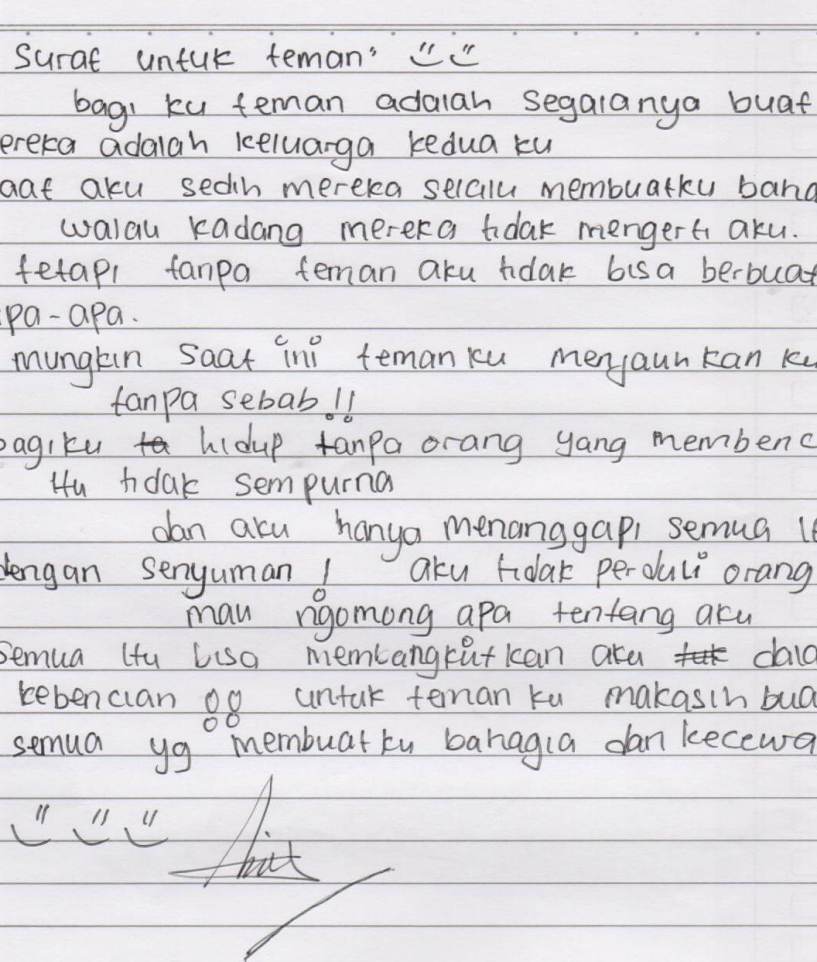 Surat untuk teman"
bagi ku teman adalah segalanya buat
ereka adalah keluarga kedua ku
aat aku sedih mereka selalu membuatku baha
walau kadang mereka tidak mengerti aku.
tetapi tanpa teman aku tidak bisa berbuat
pa-apa.
mungkin saat ini teman ku menjauhkan ku
tanpa sebab!!
bagiku hidup tanpa orang yang membenc
itu tidak sempurna
dan aku hanya menanggapi semua it
dengan senyuman! aku tidak perduli orang
mau ngomong apa tentang aku
semua itu bisa membangkitkan aku dala
kebencian untuk teman ku makasih bua
semua yg membuatku bahagia dan kecewa